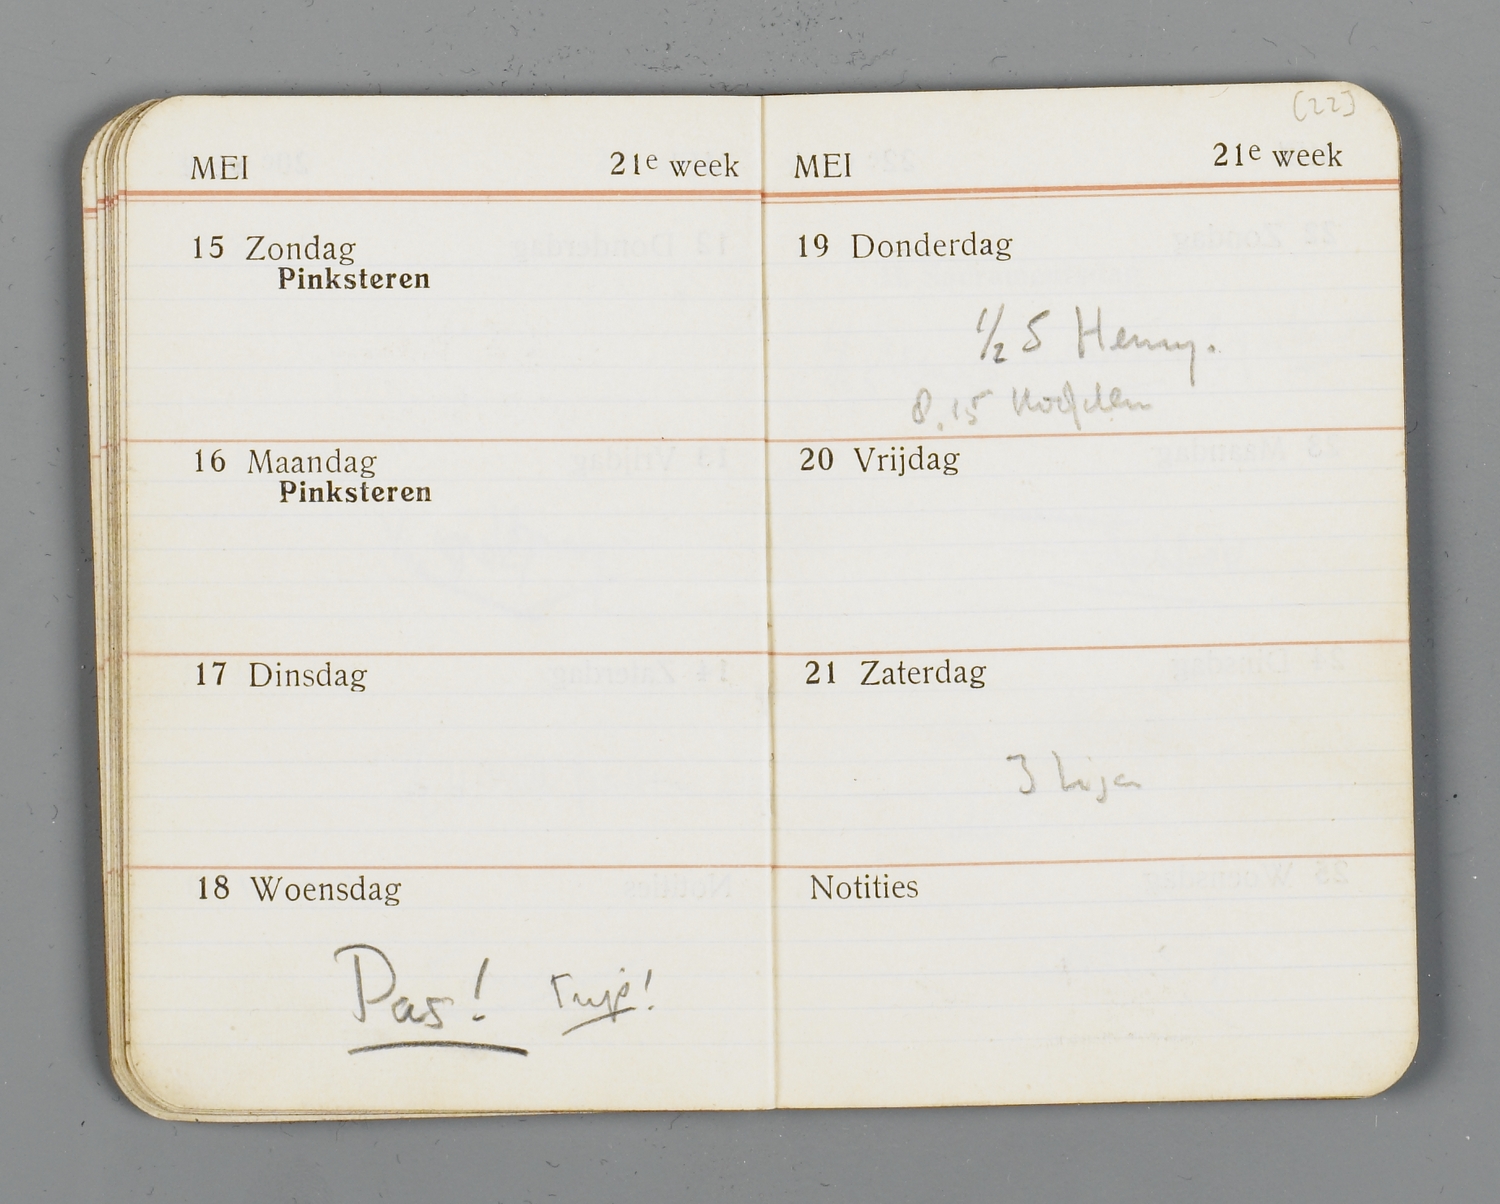 MEI 21e week
15 Zondag
Pinksteren
16 Maandag
Pinksteren
17 Dinsdag
18 Woensdag
Pas!
[22]
MEI 21e week
19 Donderdag
1/2 5 Henny.
8.15
20 Vrijdag
21 Zaterdag
3
Notities